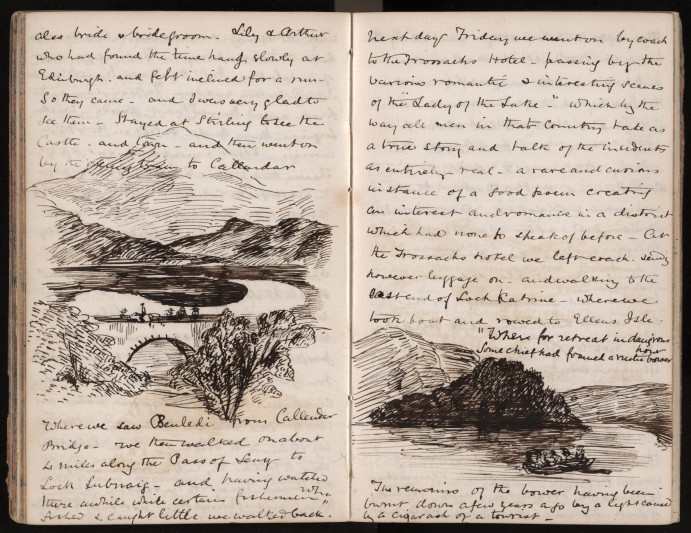 also bride & bridegroom. Lily & Arthur
who had found the time hang slowly at
Edinburgh. and felt inclined for a run.
So they came - and I was very glad to
see them - Stayed at Stirling to see the
Castle. and town - and then went on
by the evening train to Callander
Where we saw Benledi from Callender
Bridge - we then walked on about
4 miles along the Pass of Leny to
Loch Lubnaig - and having watched
there awhile while certain fishermen who
fished & caught little we walked back.
next day Friday we went on by coach
to the Trossachs Hotel - passing by the
various romantic & interesting scenes
of the "Lady of the Lake -" which by the
way all men in that Country take as
a true story and talk of the incidents
as entirely real - a rare and curious
instance of a good poem creating
an interest and romance in a district
which had none to speak of before - At
the Trossachs Hotel we left coach. sending
however luggage on - and walking to the
east end of Loch Katrine - where we
took boat and rowed to Ellens Isle.
"Where for retreat in dangerous hour
Some chief had framed a rustic bower
The remains of the bower having been
burnt down a few years ago by a light caused
by a cigar ash of a tourist -